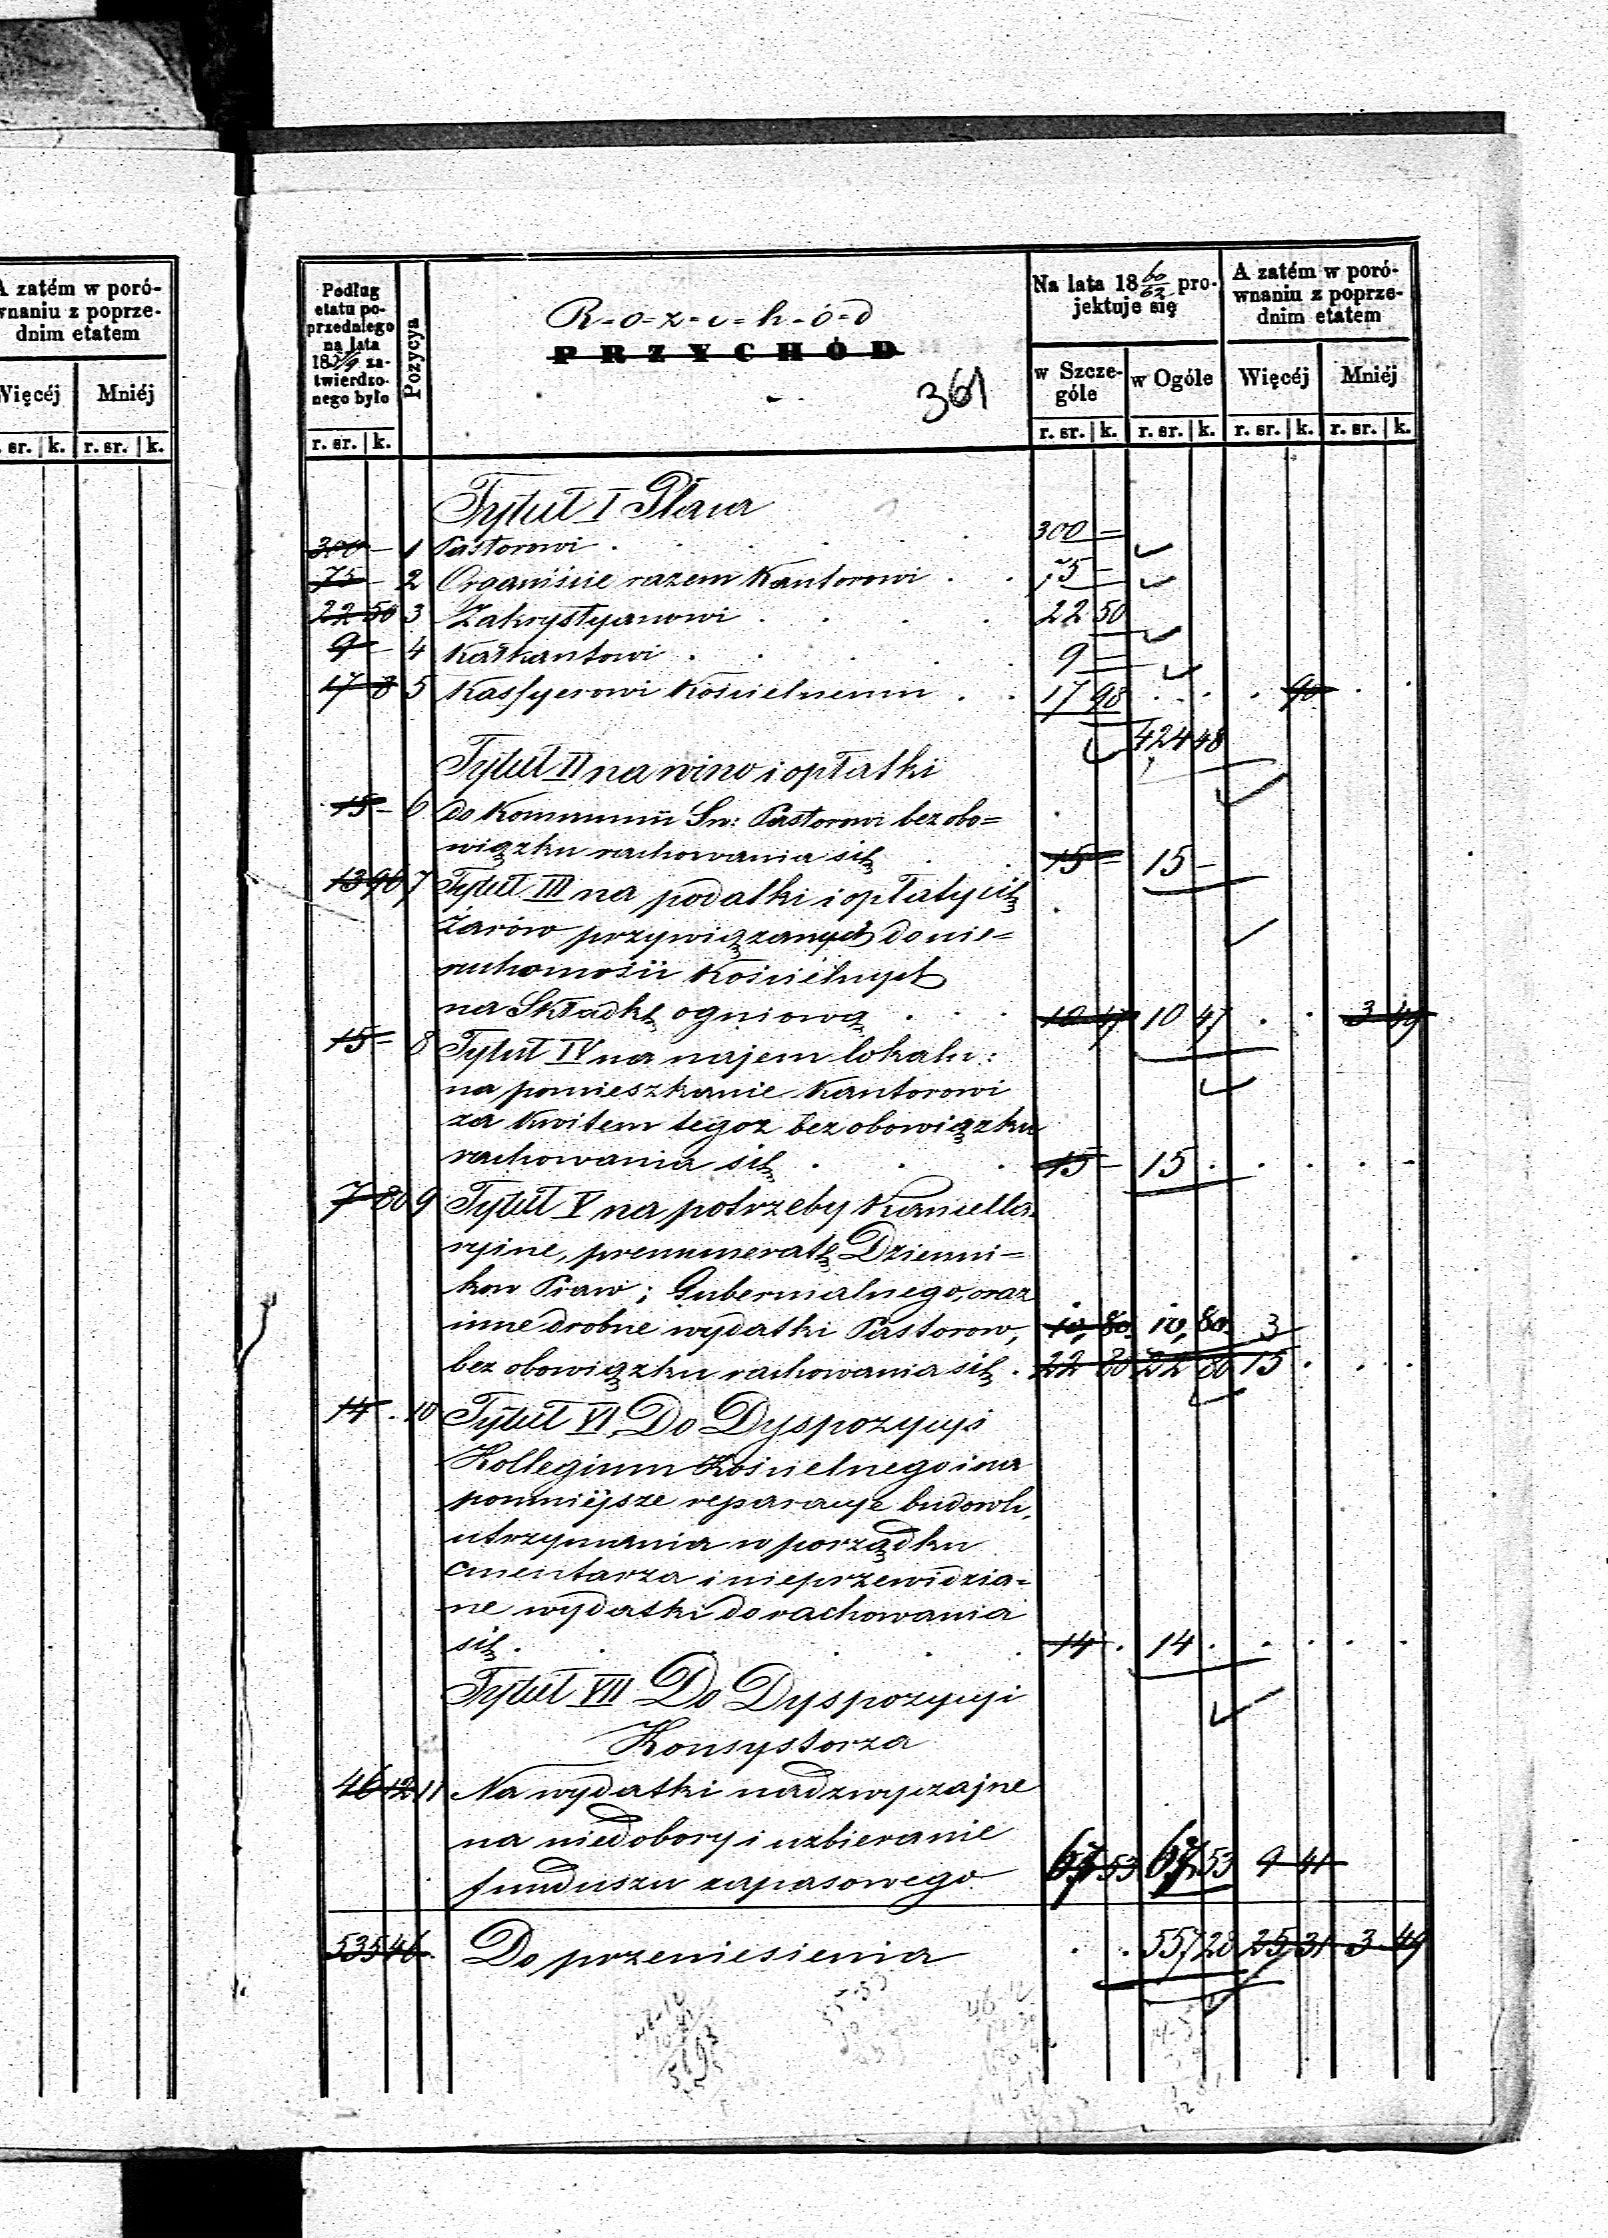 A zatém w poró-
wnaniu z poprze-
dnim etatem
Więcéj Mniéj
r. sr. k. r. sr. k.
Podług
etatu po-
przedniego
na lata
18 57/9 za-
twierdzo-
nego było
Pozycya
R=o=z=c=h=ó=d
PRZYCHÓD
361
Na lata 18 60/62 pro-
jektuje się
A zatém w poró-
wnaniu z poprze-
dnim etatem
w Szcze-
góle
w Ogóle
Więcéj
Mniéj
r. sr. k. r. sr. k. r. sr. k. r. sr. k. r. sr. k.
Tytuł I Płaca
300 – 1 Pastorowi 300 =
75 – 2 Organiście razem Kantorowi 75 –
22 50 3 Zakrystyanowi 22 50
9 – 4 Kalkantowi 9 =
17 8 5 Kassyerowi Kościelnemu 17 98 90
424 48
Tytuł II na wino i opłatki
15 – 6 do Kommunii Sw: Pastorowi bez obo=
wiązku rachowania się 15 = 15 –
13 96 7 Tytuł III na podatki i opłaty cię
żarów przywiązanych do nie=
ruchomości Kościelnych
na Składkę ogniową 10 47 10 47 3 49
15 = 8 Tytuł IV na najem lokalu:
na pomieszkanie Kantorowi
za kwitem tegoz bez obowiązku
rachowania się 15 – 15
7 80 9 Tytuł V na potrzeby Kancella
ryine, prenumeratę Dzienni=
kow Praw; Gubernialnego, oraz
inne drobne wydatki Pastorow, 10, 80 10, 80 3
bez obowiązku rachowania się 22 80 22 80 15
14 10 Tytuł VI Do Dyspozycyi
Kollegium Kościelnego i na
pomniéjsze reparacye budowli,
utrzymania w porządku
cmentarza i nieprzewidzia=
ne wydatki do rachowania
się 14 14
Tytuł VII Do Dyspozycyi
Konsystorza
46 12 11 Na wydatki nadzwyczajne
na niedobory i uzbieranie
funduszu zapasowego 53 53 9 41
535 46 Do przeniesienia 557 28 25 31 3 49